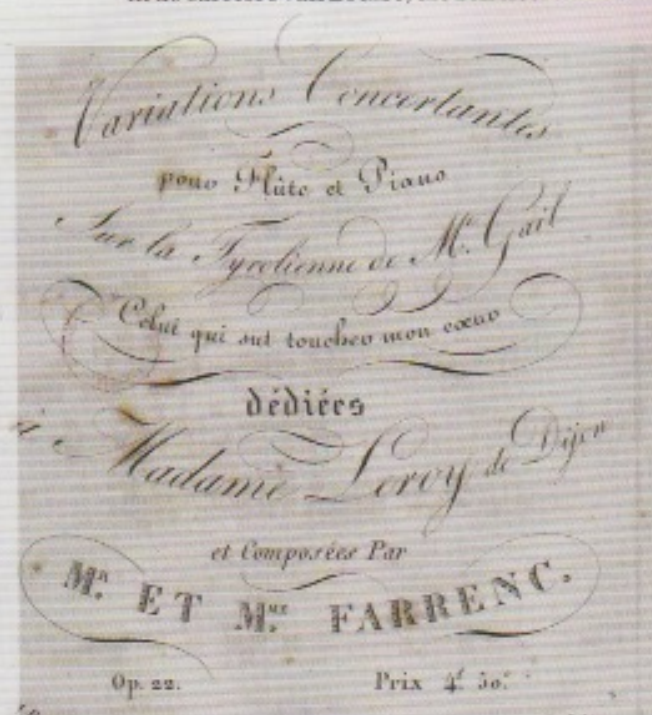 Variations Concertantes
pour Flûte et Piano
Sur la Tyrolienne de Me. Gail
Celui qui sut toucher mon cœur
dédiées
à Madame Leroy de Dijon
et Composées Par
Mr. ET Me. FARRENC.
Op. 22.
Prix 4f. 50c.